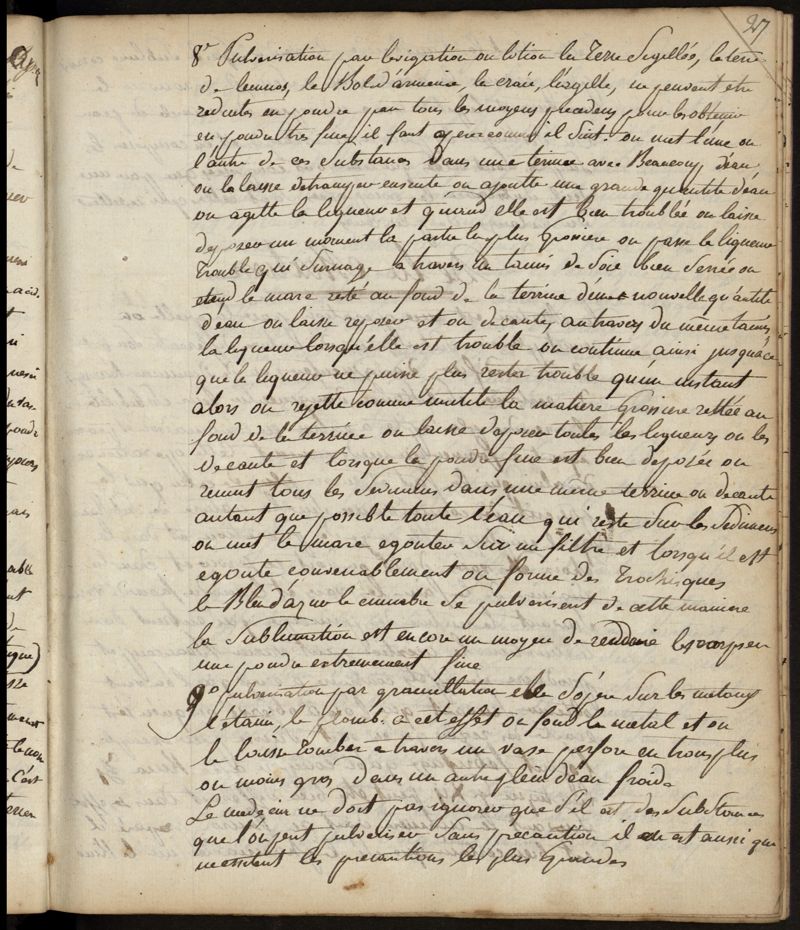 27
8° Pulverisation par levigation ou lotion la Terre Sigellée, la terre
de lemnos, le Bol d'armenie, la craie, l'argille, ne peuvent etre
reduites en poudre par tous les moyens precedens pour les obtenir
en poudre tres fine il faut operer comme il suit. on met l'une ou
l'autre de ces substances dans une terrine avec Beaucoup d'eau
on la laisse detremper ensuite on ajoutte une grande quantité d'eau
on agitte la liqueur et quand elle est bien troublée on laisse
deposer un moment la partie la plus Grossiere on passe la liqueur
Trouble qui surnage a travers un tamis de soie bien serrée on
etend le marc resté au fond de la terrine d'une nouvelle quantité
d'eau on laisse reposer et on decante, au travers du meme tamis
la liqueur lorsqu'elle est trouble on continue ainsi jusqu'a ce
que la liqueur ne puisse plus rester trouble qu'un instant
alors on rejette comme inutile la matiere Grossiere restée au
fond de la terrine on laisse deposer toutes les liqueurs on les
decante et lorsque la poudre fine est bien deposée on
reunit tous les sedimens dans une meme terrine on decante
autant que possible toute l'eau qui reste sur les sedimens
on met le marc egouter sur un filtre et lorsqu'il est
egouté convenablement on forme des Trochisques
le Bleu d'azur le cinnabre se pulverisent de cette maniere
la Sublimation est encore un moyen de rendre les corps en
une poudre extremement fine
9° pulverisation par granullation elle s'opere sur les metaux
l'étain, le plomb. a cet effet on fond le metal et on
le laisse tomber a travers un vase perforé en trous plus
ou moins gros dans un autre plein d'eau froide
Le medecin ne doit pas ignorer que s'il est des substances
que l'on peut pulveriser sans precaution il en est aussi qui
necessitent les precautions les plus Grandes